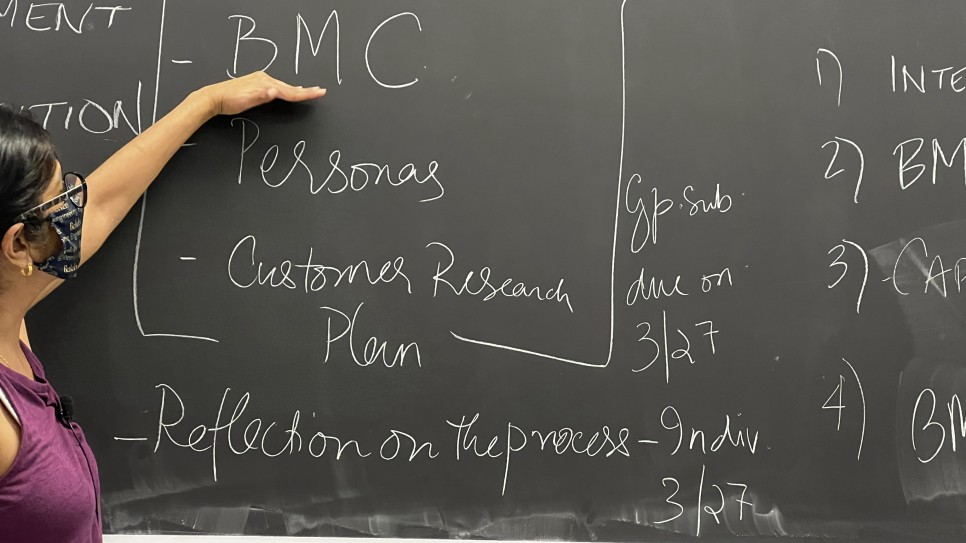 MENT
ITION
- BMC
- Personas
- Customer Research
Plan
Gp. Sub
due on
3/27
- Reflection on the process - Indiv.
3/27
1) INTE
2) BM
3) - CAP
4) BM